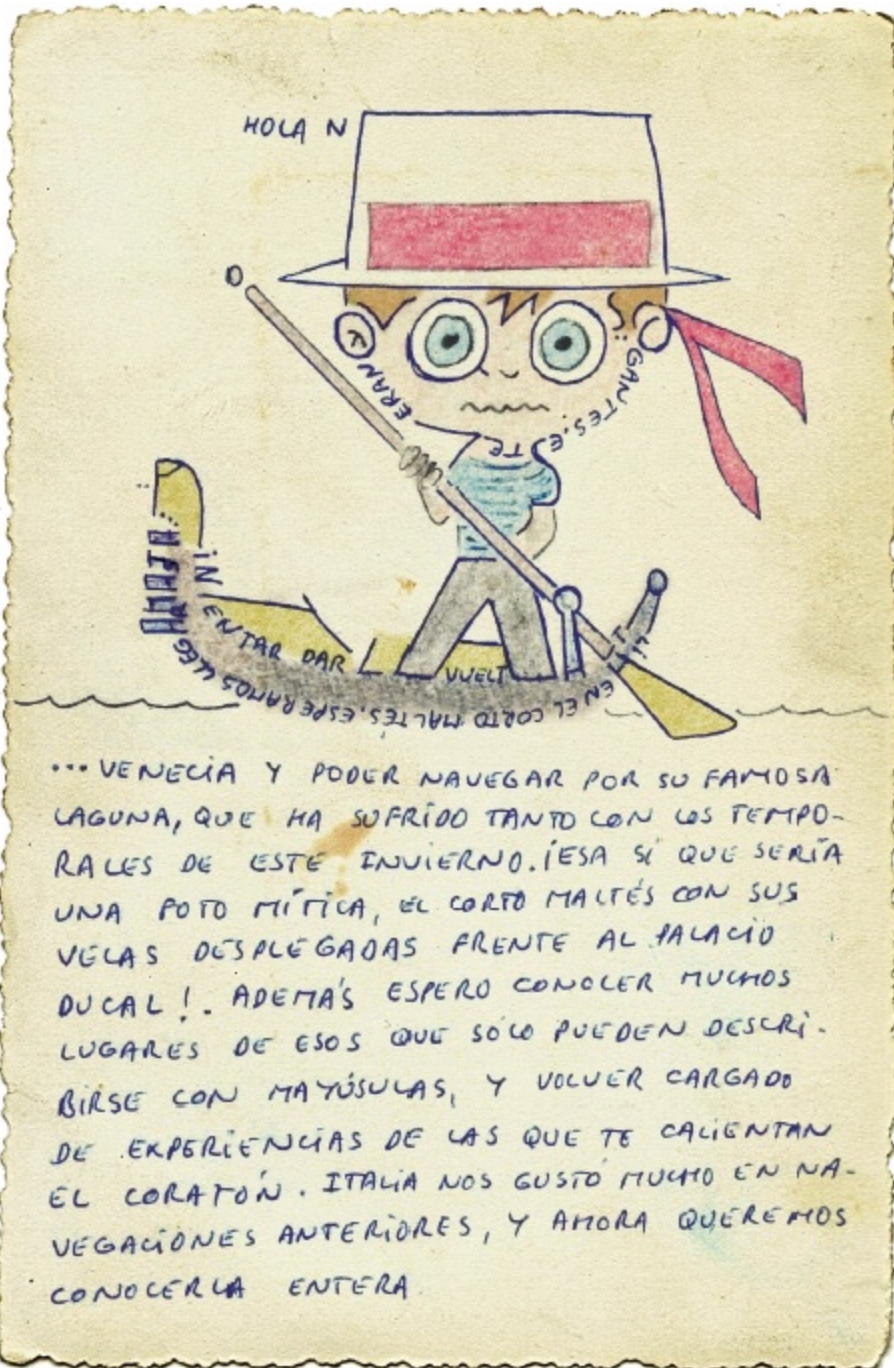 HOLA N
GANTES. ESTE
ERAN
O
INTENTAR DAR
VUELT
EN EL CORTO MALTÉS. ESPERAMOS LLEGAR
HASTA...
...VENECIA Y PODER NAVEGAR POR SU FAMOSA
LAGUNA, QUE HA SUFRIDO TANTO CON LOS TEMPO-
RALES DE ESTE INVIERNO. ¡ESA SÍ QUE SERÍA
UNA FOTO MÍTICA, EL CORTO MALTÉS CON SUS
VELAS DESPLEGADAS FRENTE AL PALACIO
DUCAL!. ADEMÁS ESPERO CONOCER MUCHOS
LUGARES DE ESOS QUE SÓLO PUEDEN DESCRI-
BIRSE CON MAYÚSULAS, Y VOLVER CARGADO
DE EXPERIENCIAS DE LAS QUE TE CALIENTAN
EL CORAZÓN. ITALIA NOS GUSTÓ MUCHO EN NA-
VEGACIONES ANTERIORES, Y AHORA QUEREMOS
CONOCERLA ENTERA